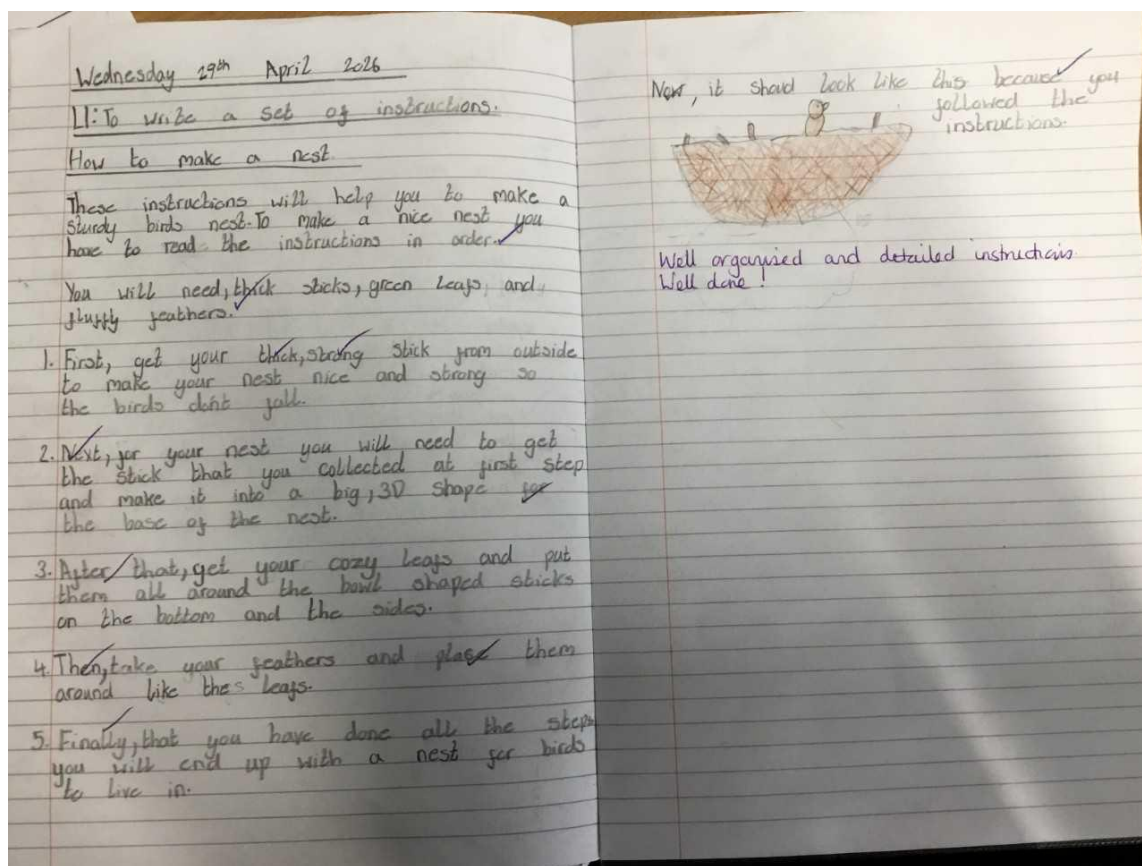 Wednesday 29th April 2026
LI: To write a set of instructions.
How to make a nest.
These instructions will help you to make a
sturdy birds nest. To make a nice nest you
have to read the instructions in order.
You will need, thick sticks, green leafs, and
fluffy feathers.
1. First, get your thick, strong stick from outside
to make your nest nice and strong so
the birds don't fall.
2. Next, for your nest you will need to get
the stick that you collected at first step
and make it into a big, 3D shape for
the base of the nest.
3. After that, get your cozy leafs and put
them all around the bowl shaped sticks
on the bottom and the sides.
4. Then, take your feathers and place them
around like the leafs.
5. Finally, that you have done all the steps
you will end up with a nest for birds
to live in.
Now, it shoud look like this because you
followed the
instructions.
Well organised and detailed instructions.
Well done!